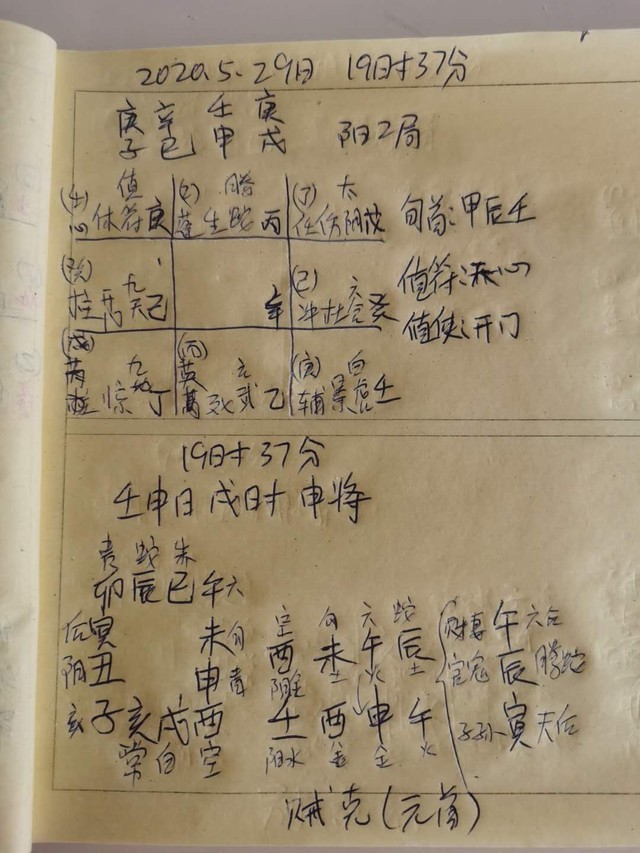 2020.5.29日 19时37分
庚 辛 壬 庚
子 巳 申 戌 阳2局
值 螣 (丁) 太
心 休 符 庚 蓬 生 蛇 丙 任 伤 阴 戊 旬首:甲辰壬
九 (己) 六 值符:天心
柱 开 天 己 辛 冲 杜 合 癸 值使:开门
九 (丙) 元 白
芮 惊 地 丁 英 死 武 乙 辅 景 虎 壬
19时37分
壬申日 戌时 申将
贵 蛇 朱
卯 辰 巳 午 六
后 寅 未 勾 空 勾 六 蛇 午 六合
阴 丑 申 青 酉 未 午 辰 官鬼 辰 螣蛇
玄 子 亥 戌 酉 壬 酉 申 午 子孙 寅 天后
常 白 空 阳水 金 金 火
贼克(元首)